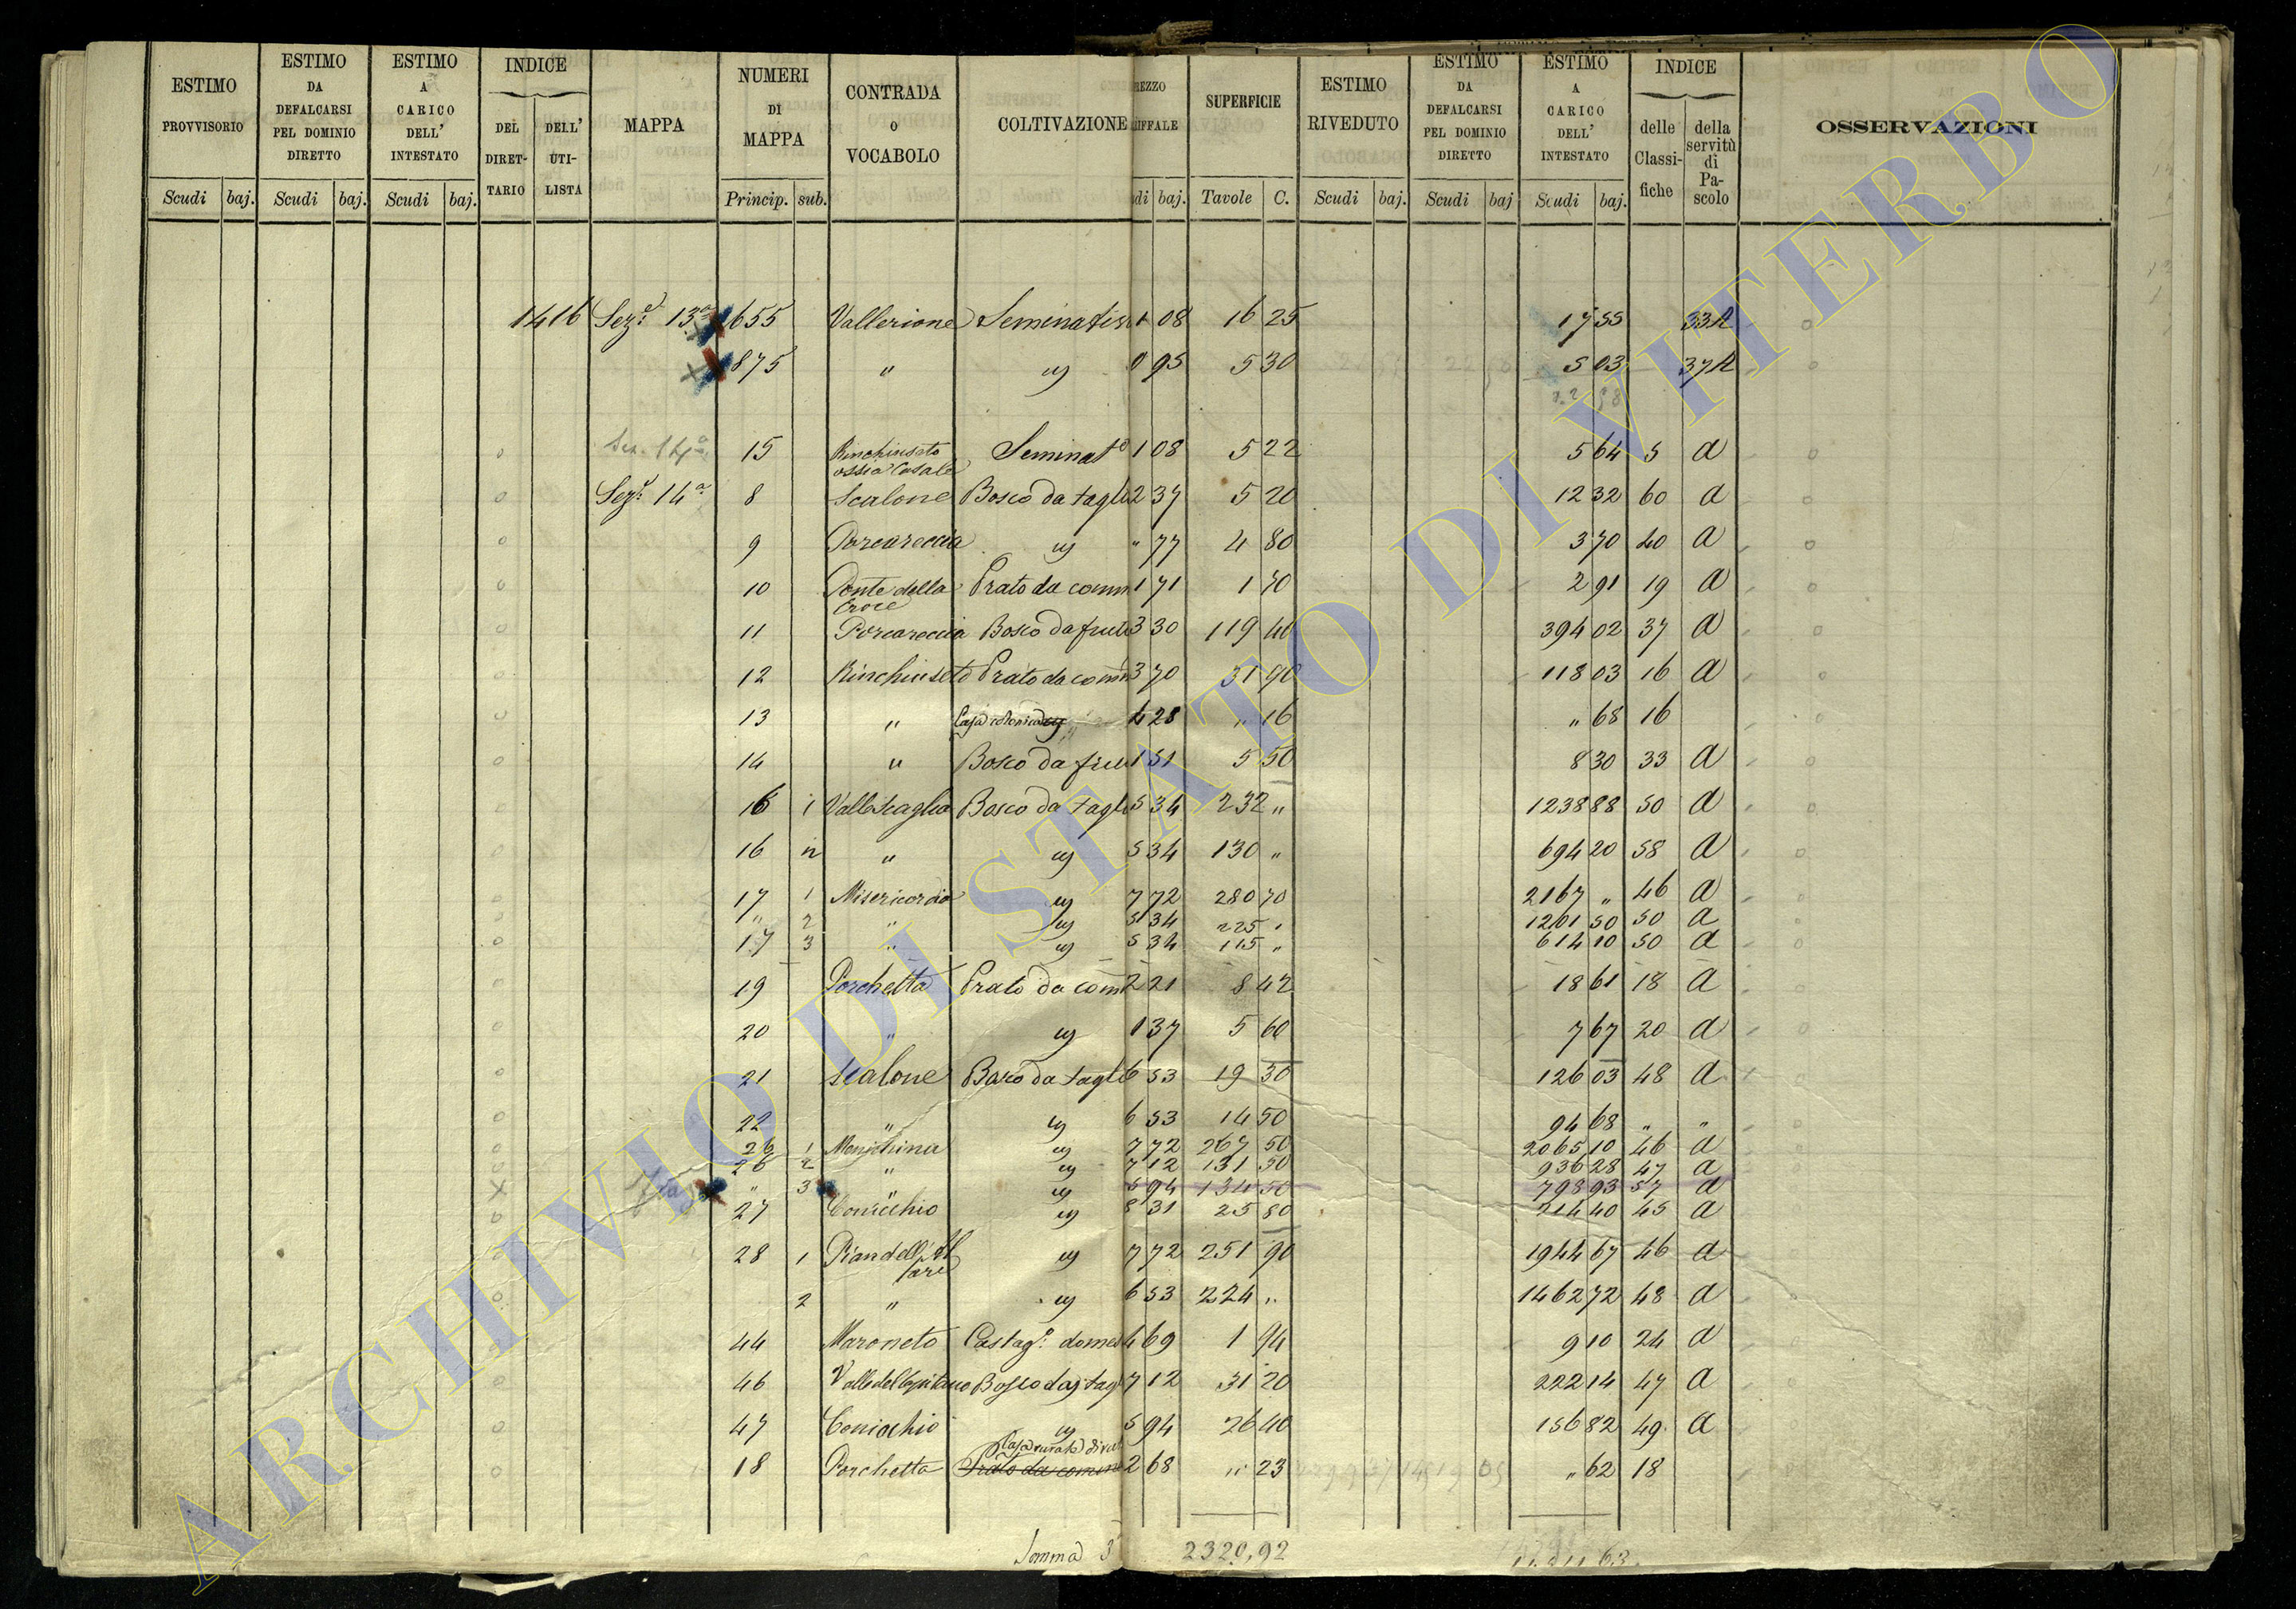 ESTIMO PROVVISORIO Scudi baj.
ESTIMO DA DEFALCARSI PEL DOMINIO DIRETTO Scudi baj.
ESTIMO A CARICO DELL' INTESTATO Scudi baj.
INDICE DEL DIRET- TARIO DELL' UTI- LISTA
MAPPA
NUMERI DI MAPPA Princip. sub.
CONTRADA O VOCABOLO
COLTIVAZIONE
REZZO IFFALE di baj.
SUPERFICIE Tavole C.
ESTIMO RIVEDUTO Scudi baj.
ESTIMO DA DEFALCARSI PEL DOMINIO DIRETTO Scudi baj
ESTIMO A CARICO DELL' INTESTATO Scudi baj.
INDICE delle Classi- fiche della servitù di Pa- scolo
OSSERVAZIONI
1416 Sez.e 13a 655 Vallerione 1 08 16 25 17 55 33A
875 " 0 95 5 30 5 03 37A
22 58
Sez. 14a 15 Rinchiuseto ossia Casale Seminato 1 08 5 22 5 64 5 a
Sez.e 14a 8 Scalone Bosco da tagli 2 37 5 20 12 32 60 a
9 Porcareccia " 77 4 80 3 70 40 a
10 Ponte della Croce Prato da comm 1 71 1 70 2 91 19 a
11 Porcareccia Bosco da frut 3 30 119 40 394 02 37 a
12 Rinchiuseto Prato da comm 3 70 31 90 118 03 16 a
13 " Casa colonica 4 28 " 16 " 68 16
14 " Bosco da frut 1 51 5 50 8 30 33 a
16 1 Valle Scaglia Bosco da tagl 5 34 232 " 1238 88 50 a
16 " 5 34 130 " 694 20 58 a
17 1 Misericordia 7 72 280 70 2167 " 46 a
" 2 " 5 34 225 " 1201 50 50 a
17 3 " 5 34 115 " 614 10 50 a
19 Porchetta Prato da comm 2 21 8 42 18 61 18 a
20 " 1 37 5 60 7 67 20 a
21 Scalone Bosco da tagli 6 53 19 30 126 03 48 a
22 " 6 53 14 50 94 68 " "
26 1 Menichina 7 72 267 50 2065 10 46 a
26 2 " 7 12 131 50 936 28 47 a
" 3 " 5 94 134 50 798 93 57 a
27 Conicchio 8 31 25 80 214 40 45 a
28 1 Piandell'Al tare 7 72 251 90 1944 67 46 a
2 " 6 53 224 " 1462 72 48 a
44 Maroneto Castag.o domes 4 69 1 94 9 10 24 a
46 Valle del Capitano Bosco da tagl 7 12 31 20 222 14 47 a
47 Coniochio 5 94 26 40 156 82 49 a
18 Porchetta Casa rurale Prato da comm 2 68 " 23 " 62 18
Somma 2320,92
ARCHIVIO DI STATO DI VITERBO